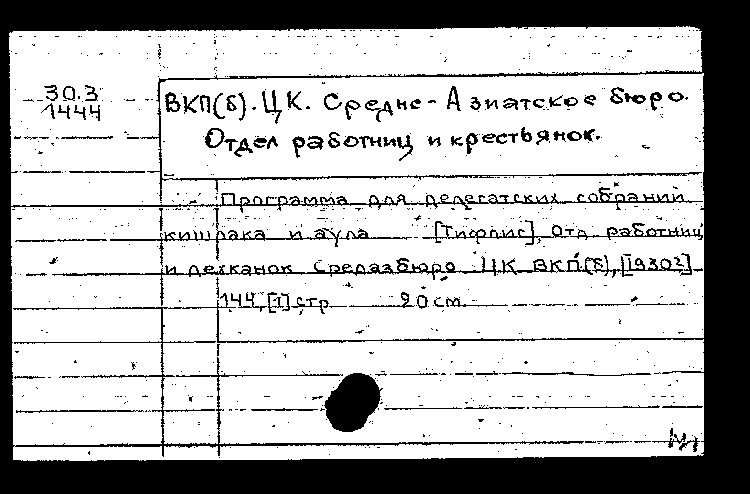 30.3
1444
ВКП(б). ЦК. Средне-Азиатское бюро.
Отдел работниц и крестьянок.
Программа для делегатских собраний
кишлака и аула [Тифлис], Отд. работниц
и дехканок Средазбюро ЦК ВКП(б), [1930?]
144, [1] стр 20 см.